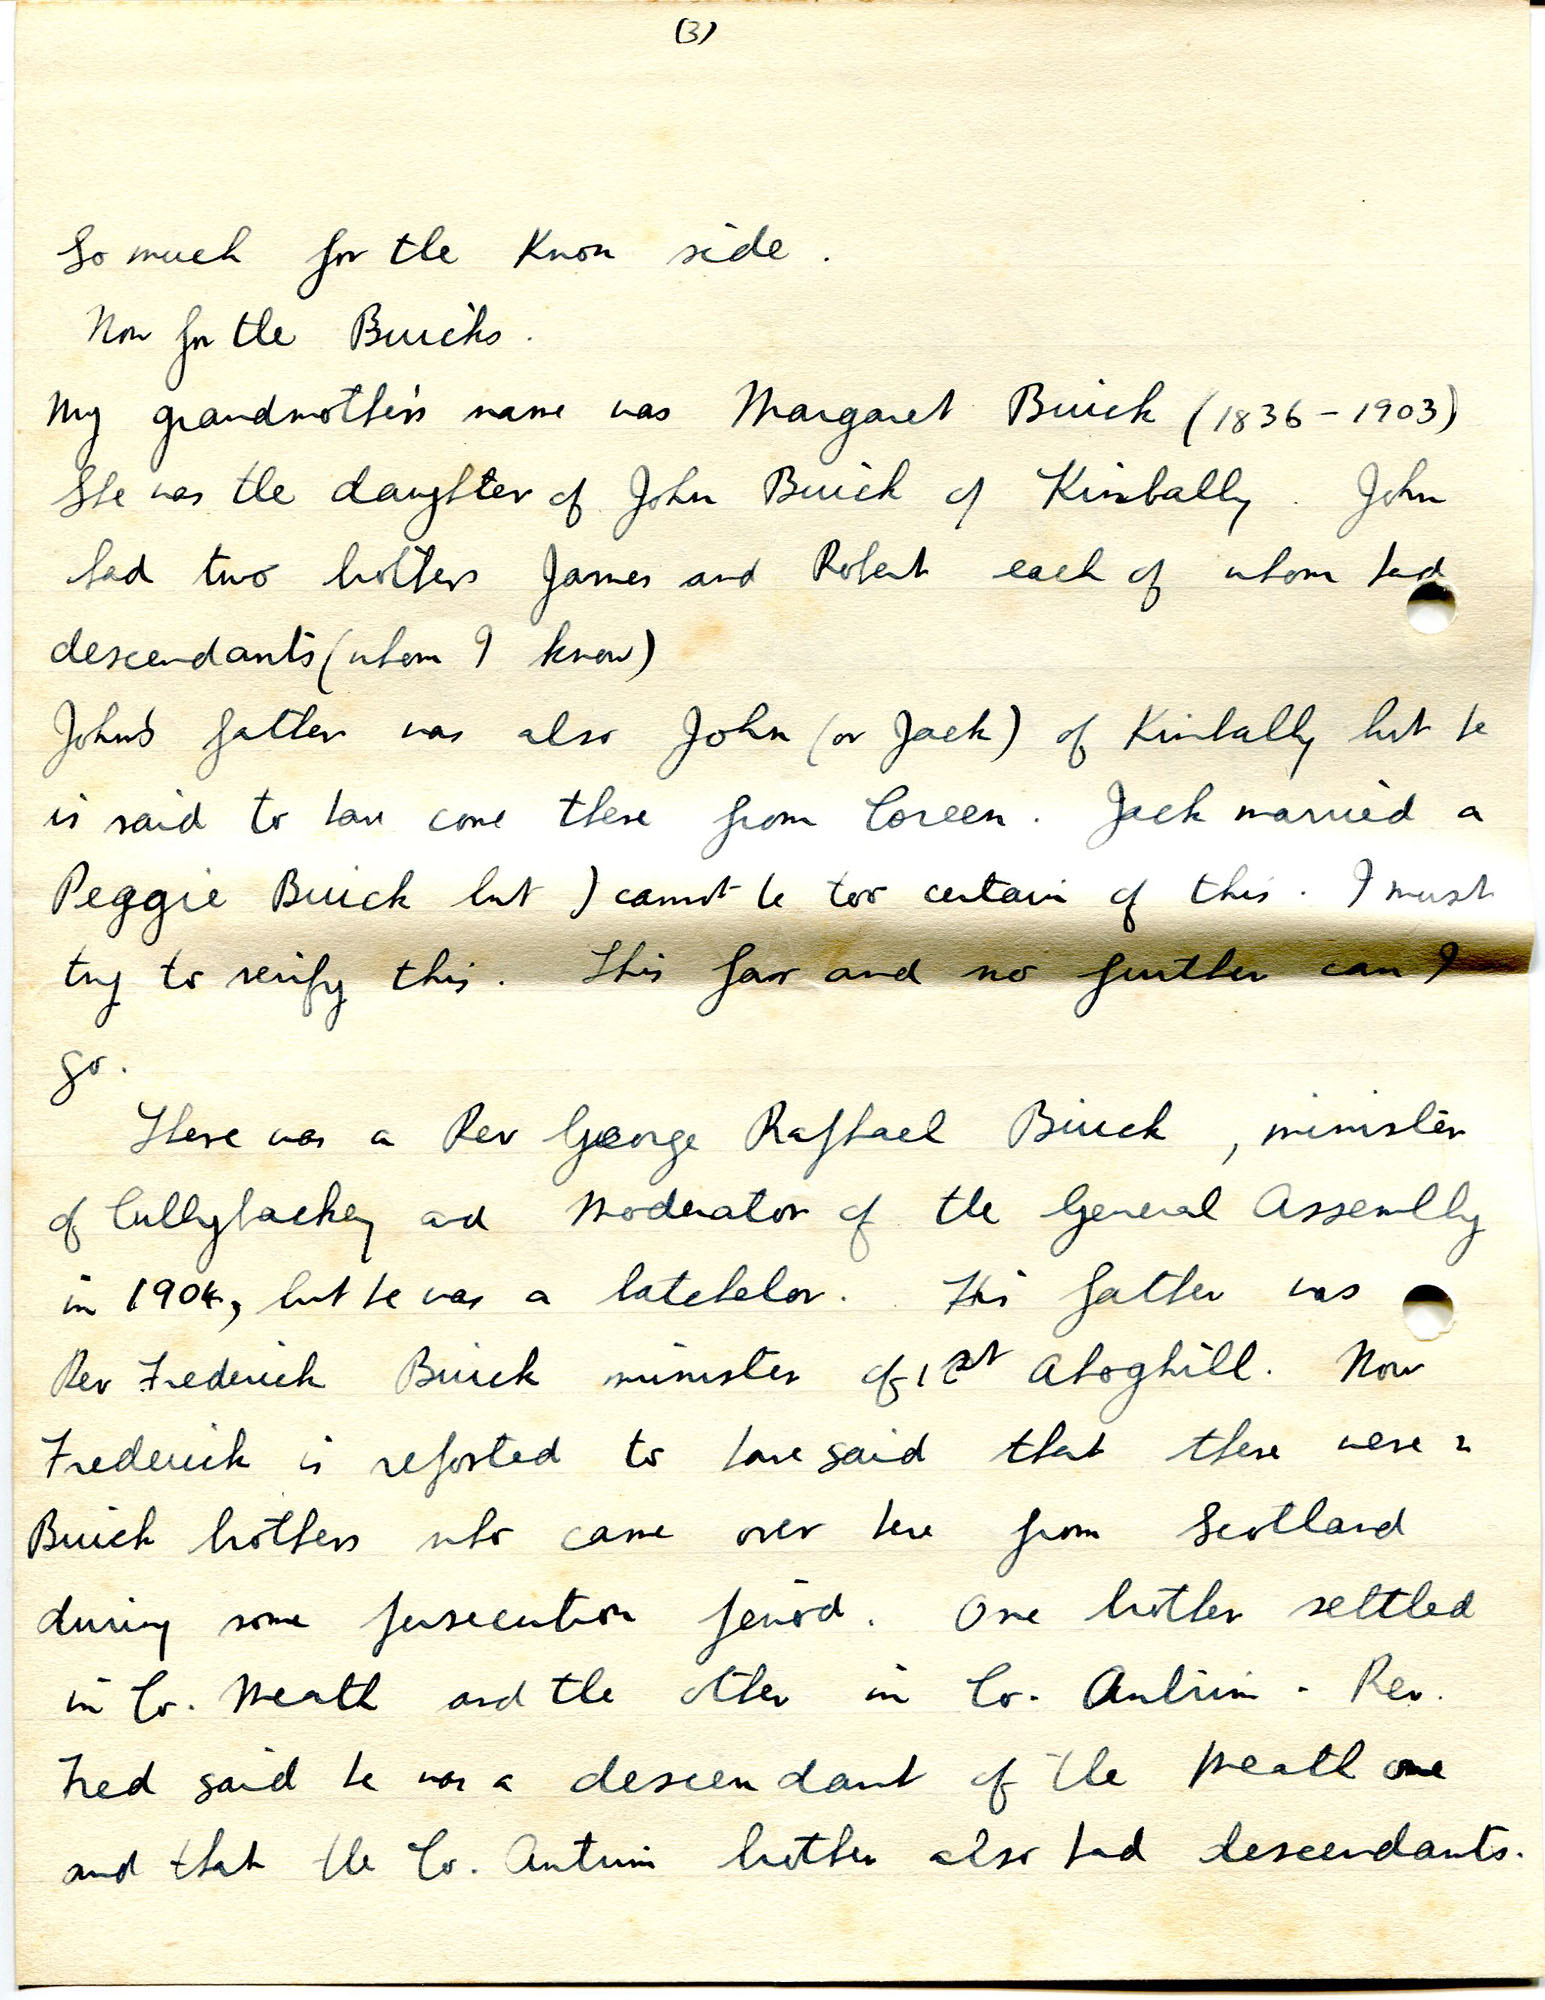 (3)
So much for the Knox side.
Now for the Buicks.
My grandmother's name was Margaret Buick (1836-1903)
She was the daughter of John Buick of Kinbally. John
had two brothers James and Robert each of whom had
descendants (whom I know)
John's father was also John (or Jack) of Kinbally but he
is said to have come there from Coreen. Jack married a
Peggie Buick but I cannot be too certain of this. I must
try to verify this. This far and no further can I
go.
There was a Rev George Raphael Buick, minister
of Cullybackey and Moderator of the General Assembly
in 1904, but he was a batchelor. His father was
Rev Frederick Buick minister of 1st Ahoghill. Now
Frederick is reported to have said that there were 2
Buick brothers who came over here from Scotland
during some persecution period. One brother settled
in Co. Meath and the other in Co. Antrim - Rev.
Fred said he was a descendant of the Meath one
and that the Co. Antrim brother also had descendants.